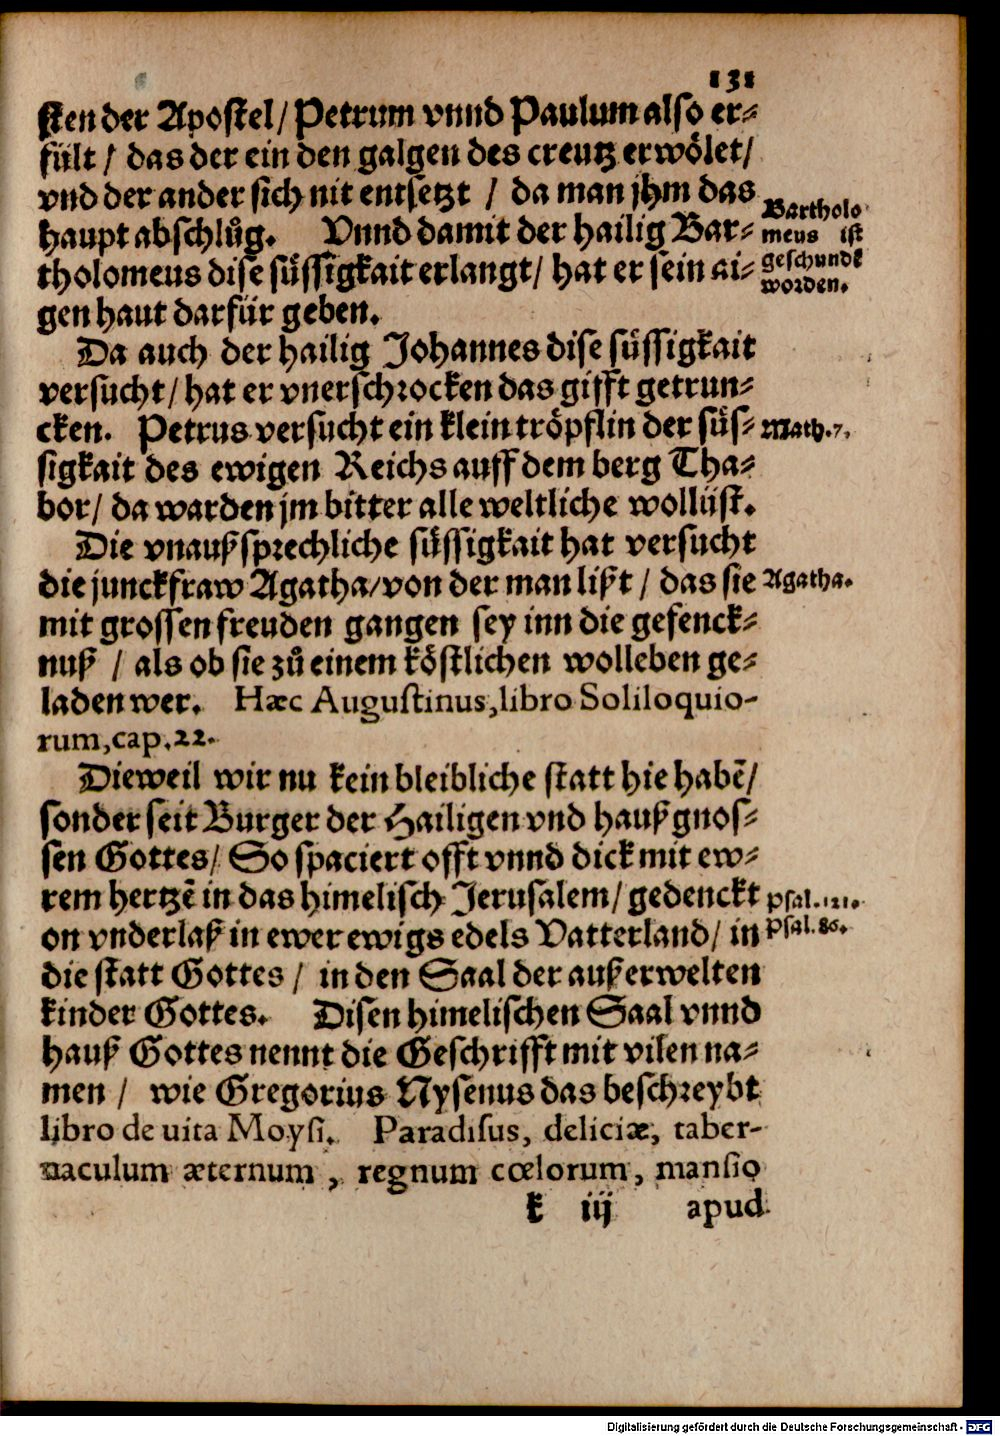 131
sten der Apostel/ Petrum vnnd Paulum also er-
fült / das der ein den galgen des creutz erwölet/
vnd der ander sich nit entsetzt / da man jhm das
haupt abschlůg. Vnnd damit der hailig Bar-
tholomeus dise süssigkait erlangt/ hat er sein ai-
gen haut darfür geben.
Bartholo
meus ist
geschundẽ
worden.
Da auch der hailig Johannes dise süssigkait
versucht/ hat er vnerschrocken das gifft getrun-
cken. Petrus versucht ein klein tröpflin der süs-
Math.7.
sigkait des ewigen Reichs auff dem berg Tha-
bor/ da warden jm bitter alle weltliche wollüst.
Die vnaußsprechliche süssigkait hat versucht
die junckfraw Agatha/von der man lißt / das sie
Agatha.
mit grossen freuden gangen sey inn die gefenck-
nuß / als ob sie zů einem köstlichen wolleben ge-
laden wer. Hæc Augustinus,libro Soliloquio-
rum,cap.22.
Dieweil wir nu kein bleibliche statt hie habẽ/
sonder seit Burger der Hailigen vnd haußgnos-
sen Gottes/ So spaciert offt vnnd dick mit ew-
rem hertzẽ in das himelisch Jerusalem/ gedenckt
Psal.121.
on vnderlaß in ewer ewigs edels Vatterland/ in
Psal.86.
die statt Gottes / in den Saal der außerwelten
kinder Gottes. Disen himelischen Saal vnnd
hauß Gottes nennt die Geschrifft mit vilen na-
men / wie Gregorius Nysenus das beschreybt
libro de uita Moysi. Paradisus, deliciæ, taber-
naculum æternum , regnum cœlorum, mansio
k iij apud
Digitalisierung gefördert durch die Deutsche Forschungsgemeinschaft - DFG